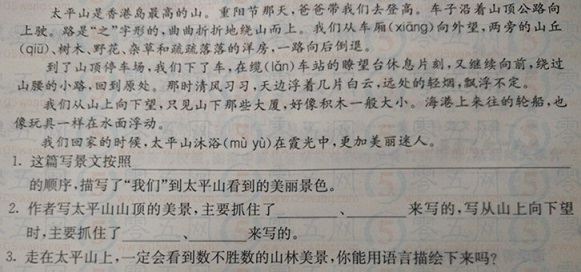 太平山是香港岛最高的山。重阳节那天,爸爸带我们去登高。车子沿着山顶公路向
上驶。路是“之”字形的,曲曲折折地绕山而上。我们从车厢(xiāng)向外望,两旁的山丘
(qiū)、树木、野花、杂草和疏疏落落的洋房,一路向后倒退。
到了山顶停车场,我们下了车,在缆(lǎn)车站的瞭望台休息片刻,又继续向前,绕过
山腰的小路,回到原处。那时清风习习,天边浮着几片白云,远处的轻烟,飘浮不定。
我们从山上向下望,只见山下那些大厦,好像积木一般大小。海港上来往的轮船,也
像玩具一样在水面浮动。
我们回家的时候,太平山沐浴(mù yù)在霞光中,更加美丽迷人。
1. 这篇写景文按照
的顺序,描写了“我们”到太平山看到的美丽景色。
2. 作者写太平山山顶的美景,主要抓住了________、________来写的,写从山上向下望
时,主要抓住了________、________来写的。
3. 走在太平山上,一定会看到数不胜数的山林美景,你能用语言描绘下来吗?